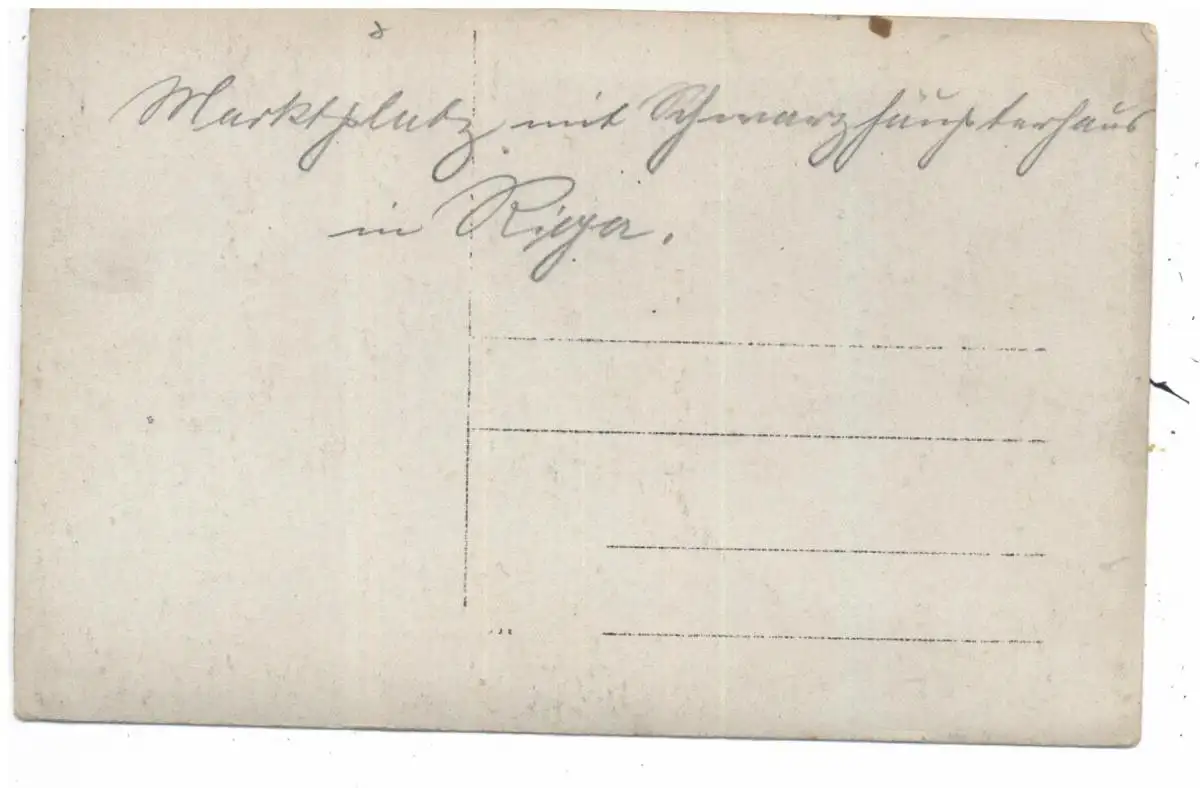 Marktplatz mit Schwarzhäupterhaus
in Riga.